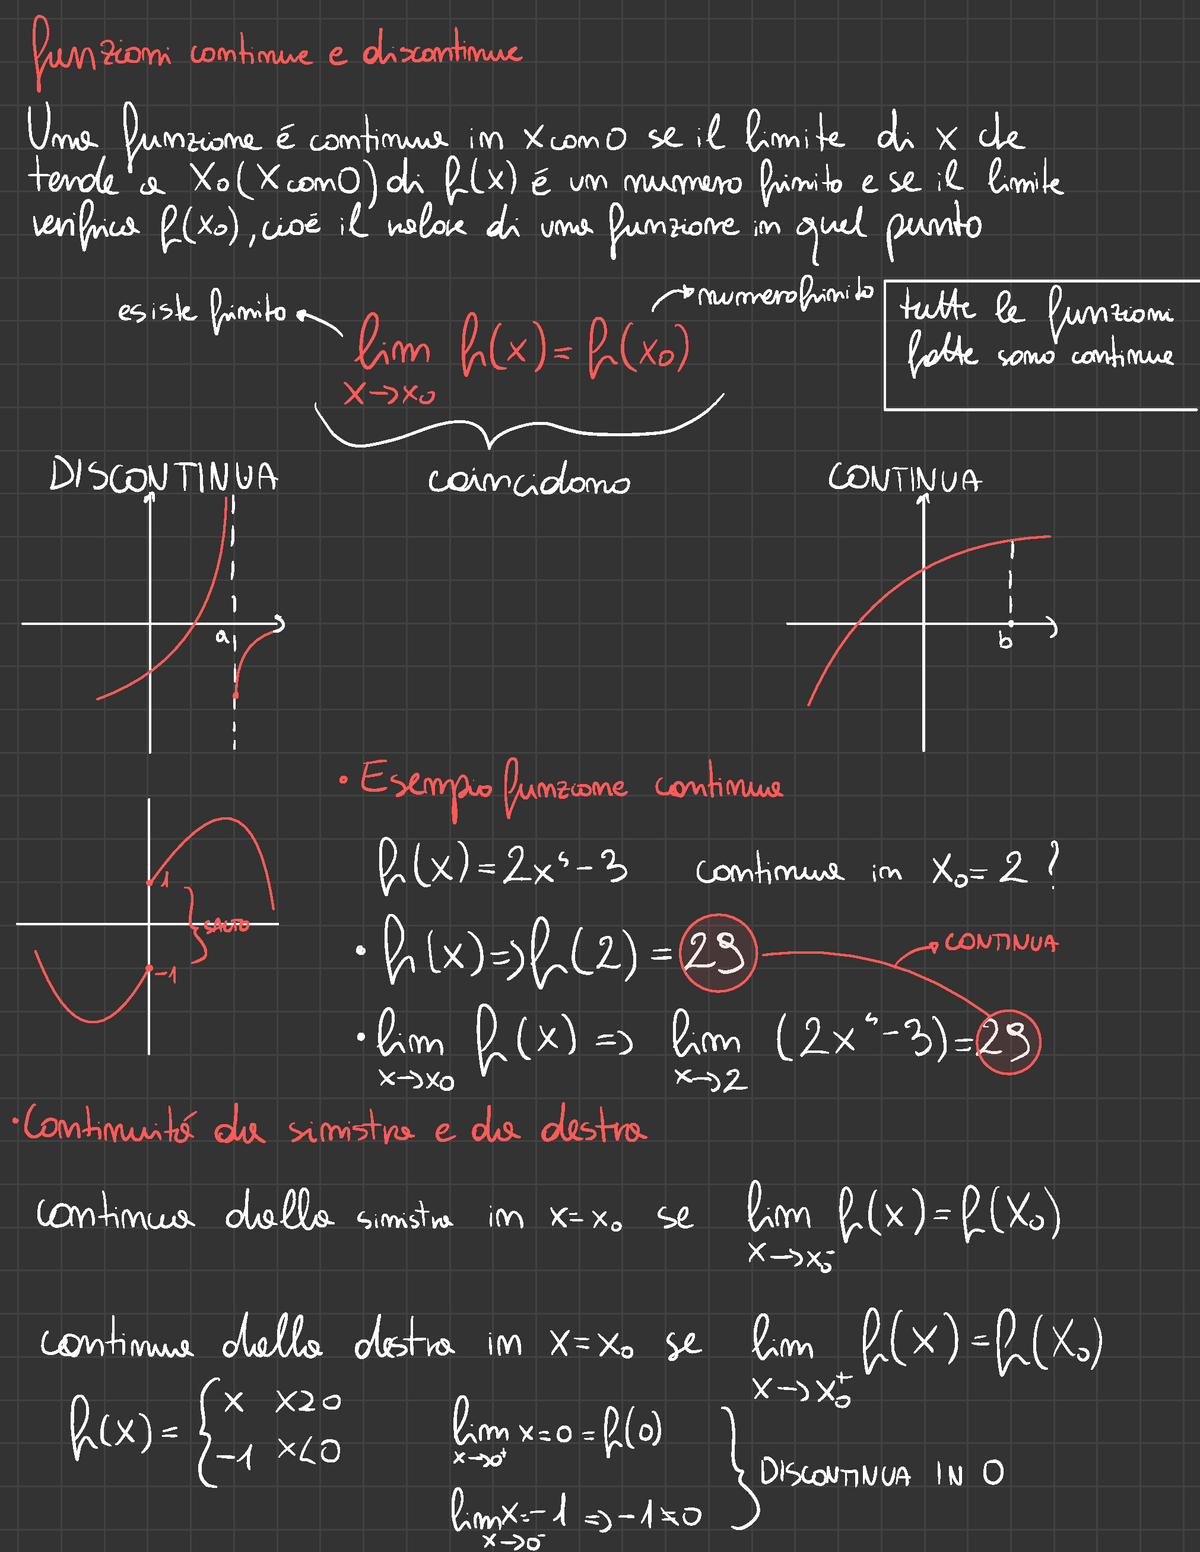 funzioni continue e discontinue
Una funzione é continua in x con 0 se il limite di x che
tende a X₀ (X con 0) di f(x) é un numero finito e se il limite
verifica f(x₀), cioé il valore di una funzione in quel punto
esiste finito
numero finito
lim f(x) = f(x₀)
x→x₀
tutte le funzioni
fatte sono continue
coincidono
DISCONTINUA
CONTINUA
a
b
• Esempio funzione continua
f(x) = 2x⁴ - 3 continua in x₀ = 2 ?
• f(x) => f(2) = 29
CONTINUA
• lim f(x) => lim (2x⁴ - 3) = 29
x→x₀ x→2
1
SALTO
-1
• Continuitá da sinistra e da destra
continua dalla sinistra in x = x₀ se lim f(x) = f(X₀)
x→x₀⁻
continua dalla destra in x = x₀ se lim f(x) = f(X₀)
x→x₀⁺
f(x) = { x x≥0
-1 x<0
lim x = 0 = f(0)
x→0⁺
lim x = -1 => -1 ≠ 0
x→0⁻
DISCONTINUA IN 0